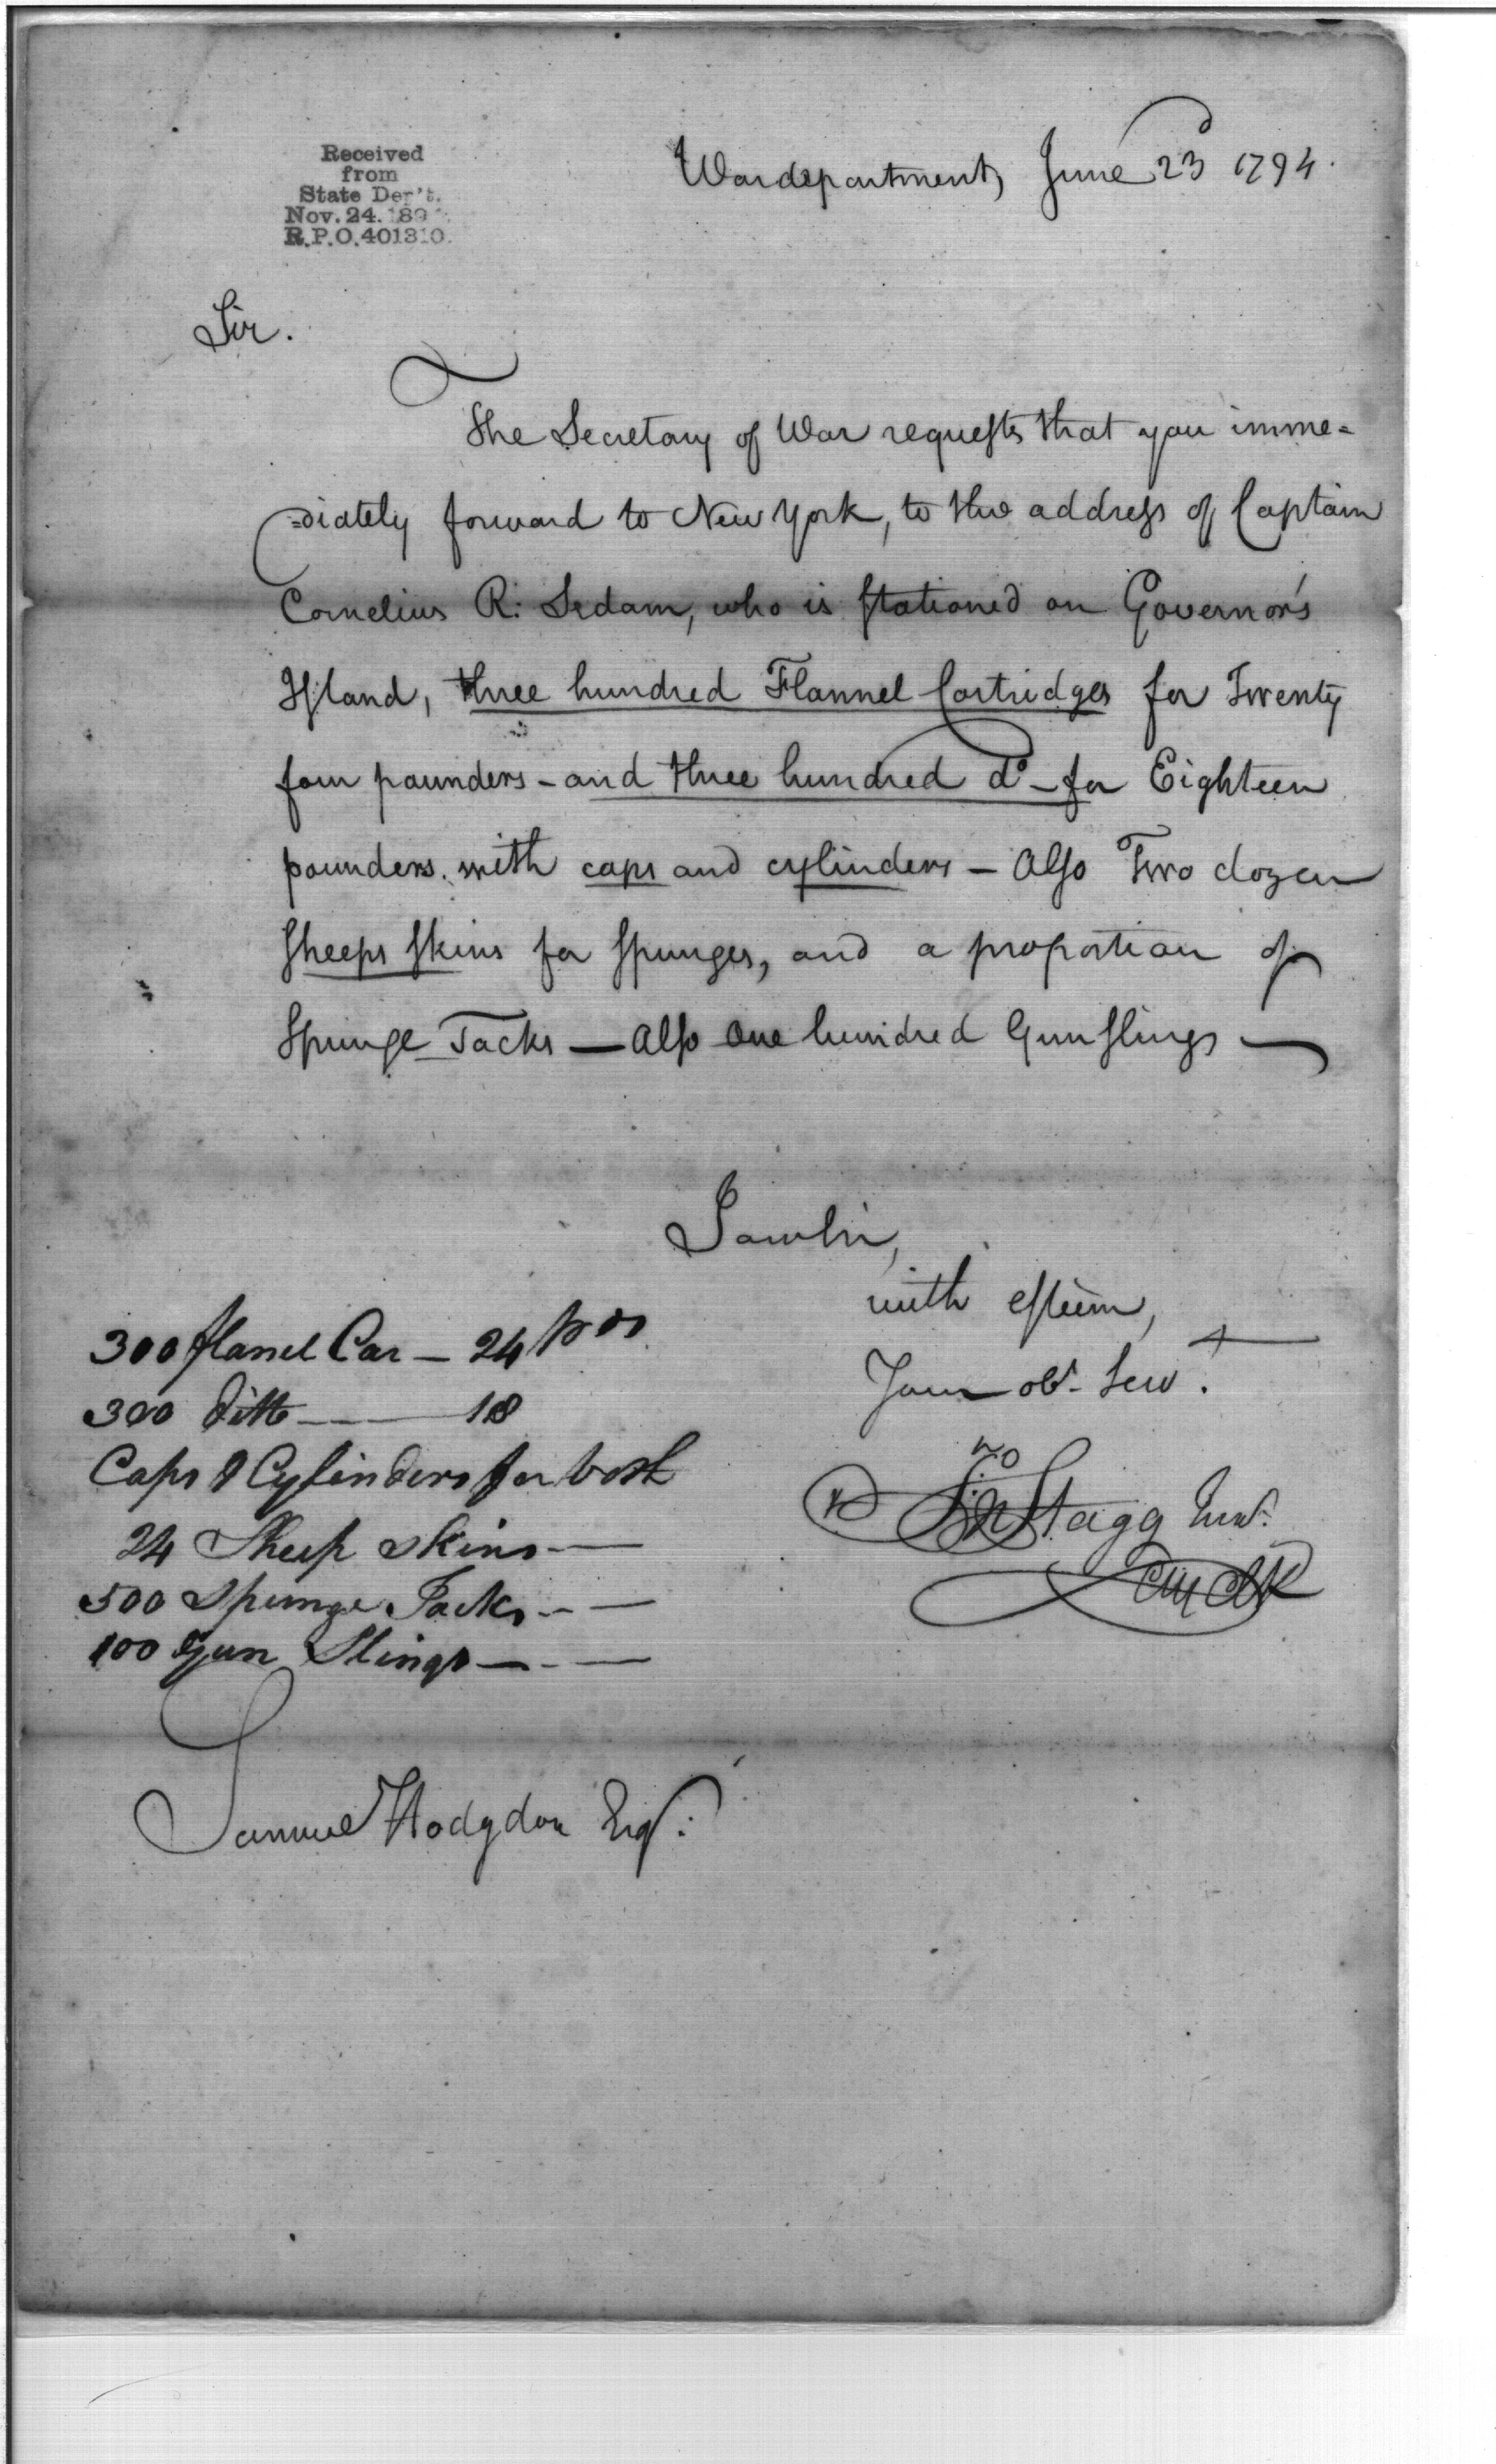 Received
from
State Dep't.
Nov. 24. 189
R.P.O. 401310.
Wardepartment, June 23d 1794.
Sir.
The Secretary of War requests that you imme=
=diately forward to New York, to the address of Captain
Cornelius R: Sedam, who is stationed on Governor's
Island, three hundred Flannel Cartridges for Twenty
four pounders - and three hundred do - for Eighteen
pounders. with caps and cylinders - Also Two dozen
sheeps skins for spunges, and a proportion of
Spunge Tacks — Also One hundred Gun slings —
I am Sir,
with esteem,
Your obt. Servt.
Jno Stagg Junr.
300 flanel Car - 24 prs
300 ditto - 18
Caps & Cylinders for both
24 Sheep Skins -
500 Spunge Tacks -
100 Gun Slings -
Samuel Hodgdon Esqr.